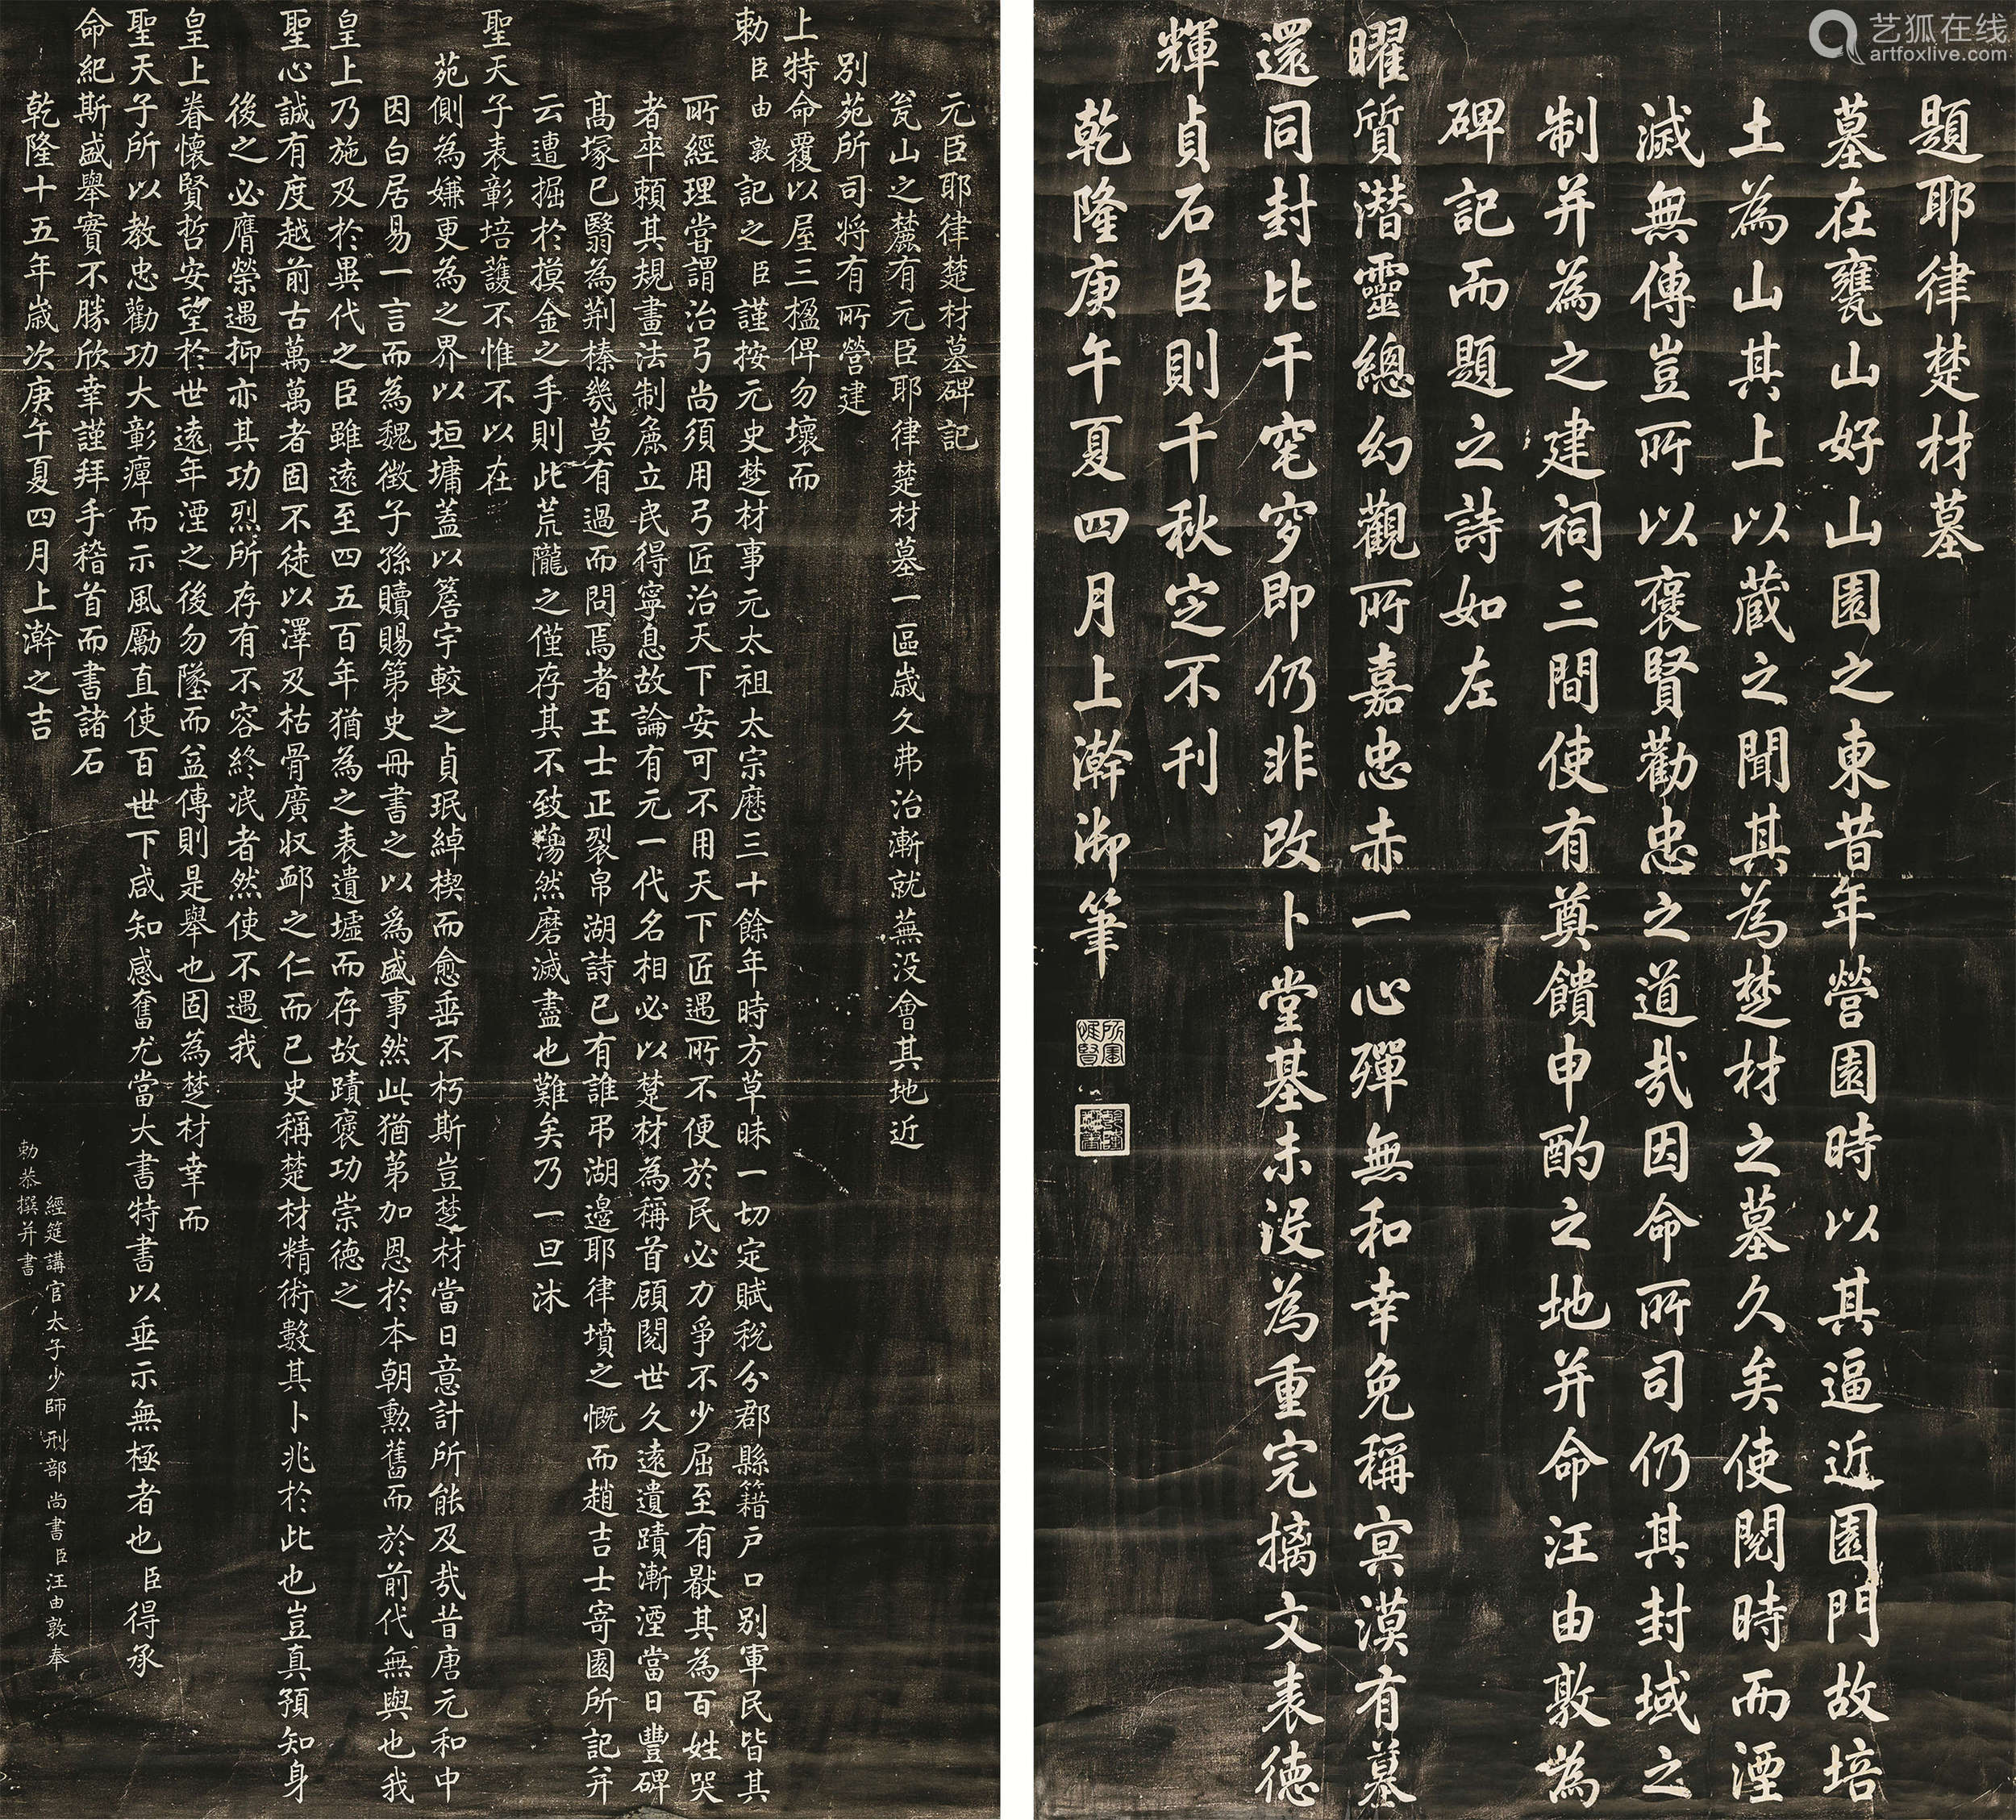 艺狐在线
artfoxlive.com
題耶律楚材墓
墓在甕山好山園之東昔年營園時以其逼近園門故培
土為山其上以蔵之聞其為楚材之墓久矣使閱時而湮
滅無傳豈所以褒賢勸忠之道㢤因命所司仍其封域之
制并為之建祠三間使有奠饋申酌之地并命汪由敦為
碑記而題之詩如左
曜質潜靈總幻觀所嘉忠赤一心殫無和幸免稱㝠漠有墓
還同封比干窀穸即仍非改卜堂基未没為重完摛文表德
輝貞石臣則千秋定不刊
乾隆庚午夏四月上澣御筆
所寶惟賢
乾隆御筆
元臣耶律楚材墓碑記
瓮山之麓有元臣耶律楚材墓一區歲久弗治漸就蕪没會其地近
別苑所司將有所營建
上特命覆以屋三楹俾勿壞而
勅臣由敦記之臣謹按元史楚材事元太祖太宗歷三十餘年時方草昧一切定賦稅分郡縣籍戶口別軍民皆其
所經理嘗謂治弓尚須用弓匠治天下安可不用天下匠遇所不便於民必力爭不少屈至有厭其為百姓哭
者卒賴其規畫法制麤立民得寧息故論有元一代名相必以楚材為稱首顧閱世久遠遺蹟漸湮當日豐碑
高塚已翳為荆榛幾莫有過而問焉者王士正裂帛湖詩已有誰弔湖邊耶律墳之慨而趙吉士寄園所記并
云遭掘於摸金之手則此荒隴之僅存其不致蕩然磨滅盡也難矣乃一旦沐
聖天子表彰培護不惟不以在
苑側為嫌更為之界以垣墉蓋以簷宇較之貞珉綽楔而愈垂不朽斯豈楚材當日意計所能及㢤昔唐元和中
因白居易一言而為魏徵子孫贖賜第史冊書之以為盛事然此猶第加恩於本朝勳舊而於前代無與也我
皇上乃施及於異代之臣雖遠至四五百年猶為之表遺墟而存故蹟褒功崇德之
聖心誠有度越前古萬萬者固不徒以澤及枯骨廣収䘏之仁而已史稱楚材精術數其卜兆於此也豈真預知身
後之必膺榮遇抑亦其功烈所存有不容終泯者然使不遇我
皇上眷懷賢哲安望於世遠年湮之後勿墜而益傳則是舉也固為楚材幸而
聖天子所以教忠勸功大彰癉而示風厲直使百世下咸知感奮尤當大書特書以垂示無極者也臣得承
命紀斯盛舉實不勝欣幸謹拜手稽首而書諸石
乾隆十五年歲次庚午夏四月上澣之吉
經筵講官太子少師刑部尚書臣汪由敦奉
勅恭撰并書